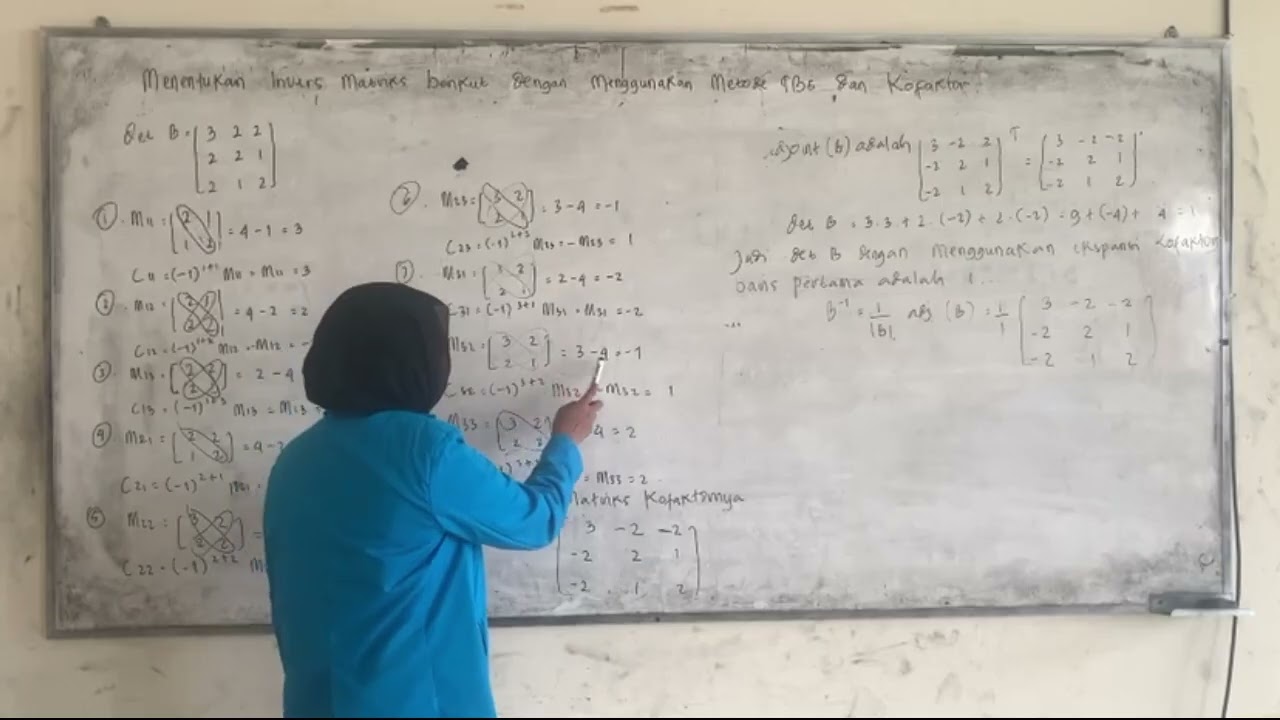 Menentukan Invers Matriks berikut dengan menggunakan Metode OBE dan Kofaktor
Det B = [3 2 2
2 2 1
2 1 2]
① M11 = [2 1
1 2] = 4 - 1 = 3
C11 = (-1)^1+1 M11 = M11 = 3
② M12 = [2 1
2 2] = 4 - 2 = 2
C12 = (-1)^1+2 M12 = -M12 = -
③ M13 = [2 2
2 1] = 2 - 4
C13 = (-1)^1+3 M13 = M13
④ M21 = [2 2
1 2] = 4 - 2
C21 = (-1)^2+1 M21 =
⑤ M22 = [3 2
2 2] =
C22 = (-1)^2+2 M
⑥ M23 = [3 2
2 1] = 3 - 4 = -1
C23 = (-1)^2+3 M23 = -M23 = 1
⑦ M31 = [2
2 1] = 2 - 4 = -2
C31 = (-1)^3+1 M31 = M31 = -2
M32 = [3 2
2 1] = 3 - 4 = -1
C32 = (-1)^3+2 M32 = -M32 = 1
M33 = [3 2
2 2] 4 = 2
3+3 = M33 = 2
Matriks Kofaktornya
[3 -2 -2
-2 2 1
-2 1 2]
Adjoint (B) adalah [3 -2 2
-2 2 1
-2 1 2]^T = [3 -2 -2
-2 2 1
-2 1 2]
Det B = 3.3 + 2.(-2) + 2.(-2) = 9 + (-4) + 4 = 1
Jadi det B dengan menggunakan ekspansi kofaktor
baris pertama adalah 1...
B^-1 = 1/|B| adj (B) = 1/1 [3 -2 -2
-2 2 1
-2 1 2]